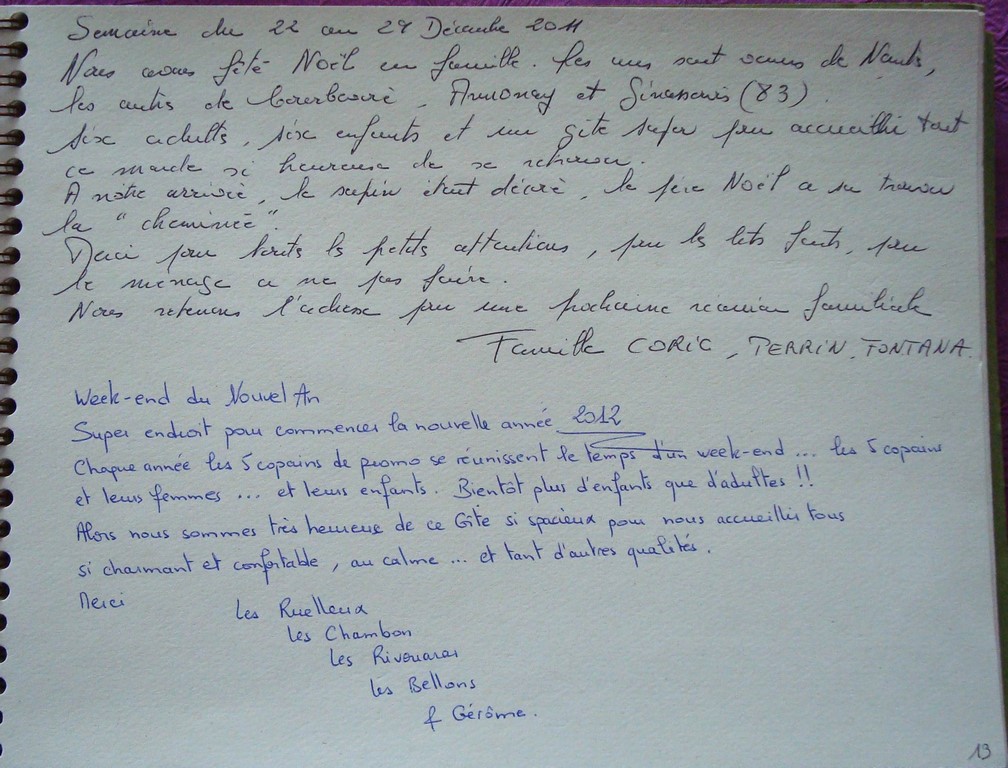 Semaine du 22 au 29 Décembre 2011
Nous avons fêté Noël en famille. Les uns sont venus de Nantes,
les autres de Annonay et (83).
Six adultes, six enfants et un gîte super pour accueillir tout
ce monde si heureux de se retrouver.
A notre arrivée, le sapin était décoré, le père Noël a su trouver
la "cheminée".
Merci pour toutes les petites attentions, pour les lits faits, pour
le ménage a ne pas faire.
Nous retenons l'adresse pour une prochaine réunion familiale
Famille CORIC, PERRIN, FONTANA
Week-end du Nouvel An
Super endroit pour commencer la nouvelle année 2012
Chaque année les 5 copains de promo se réunissent le temps d'un week-end ... les 5 copains
et leurs femmes ... et leurs enfants. Bientôt plus d'enfants que d'adultes !!
Alors nous sommes très heureux de ce Gîte si spacieux pour nous accueillir tous
si charmant et confortable, au calme ... et tant d'autres qualités.
Merci
Les Ruelleux
Les Chambon
Les
Les Bellons
& Gérôme.
13